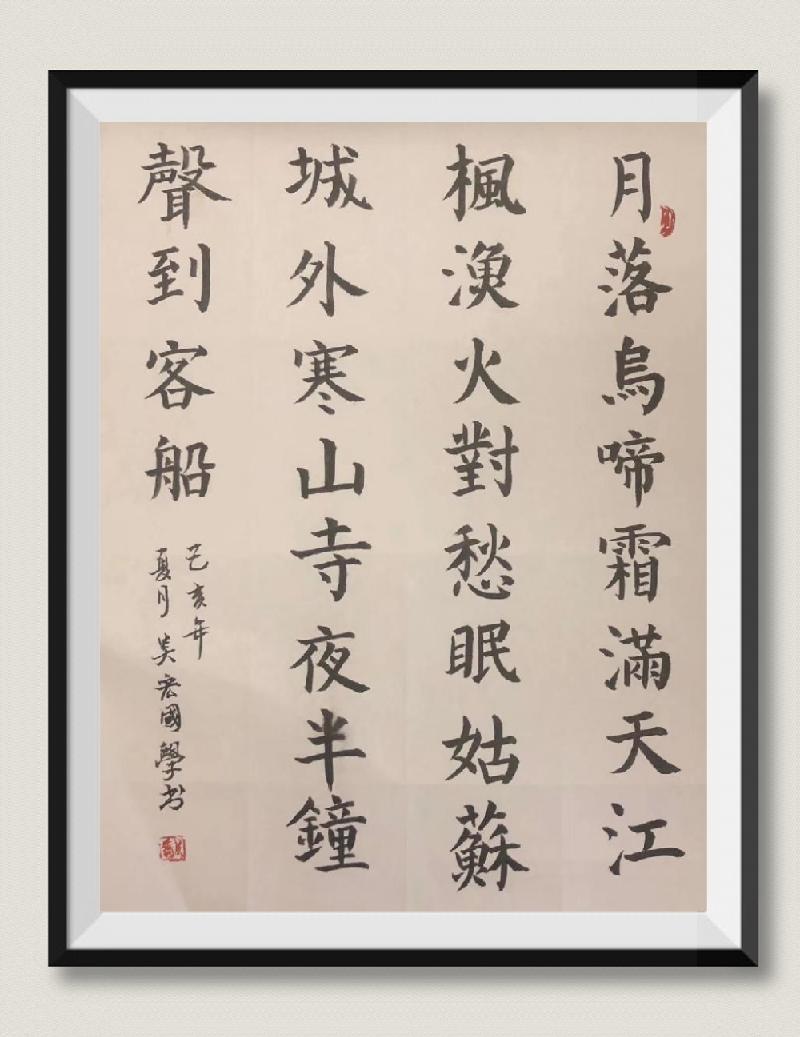 月落烏啼霜滿天江
楓漁火對愁眠姑蘇
城外寒山寺夜半鐘
聲到客船
己亥年
夏月吴宏國學書